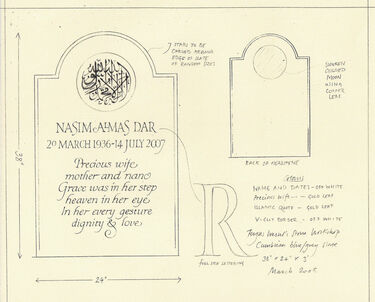 STARS TO BE
CARVED AROUND
EDGE OF SLATE
OF RANDOM SIZES
NASIM ALMAS DAR
20 MARCH 1936-14 JULY 2007
Precious wife
mother and nano
Grace was in her step
heaven in her eye
In her every gesture
dignity & love
38"
24"
COLOURED
MOON
USING
COPPER
LEAF
BACK OF HEADSTONE
R
FULL SIZE LETTERING
COLOURS
NAME AND DATES - OFF WHITE
Precious wife -- - GOLD LEAF
ISLAMIC QUOTE - GOLD LEAF
BORDER - OFF WHITE
Workshop
Cumbrian blue/grey slate
38" x 24" x 3"
March 2008